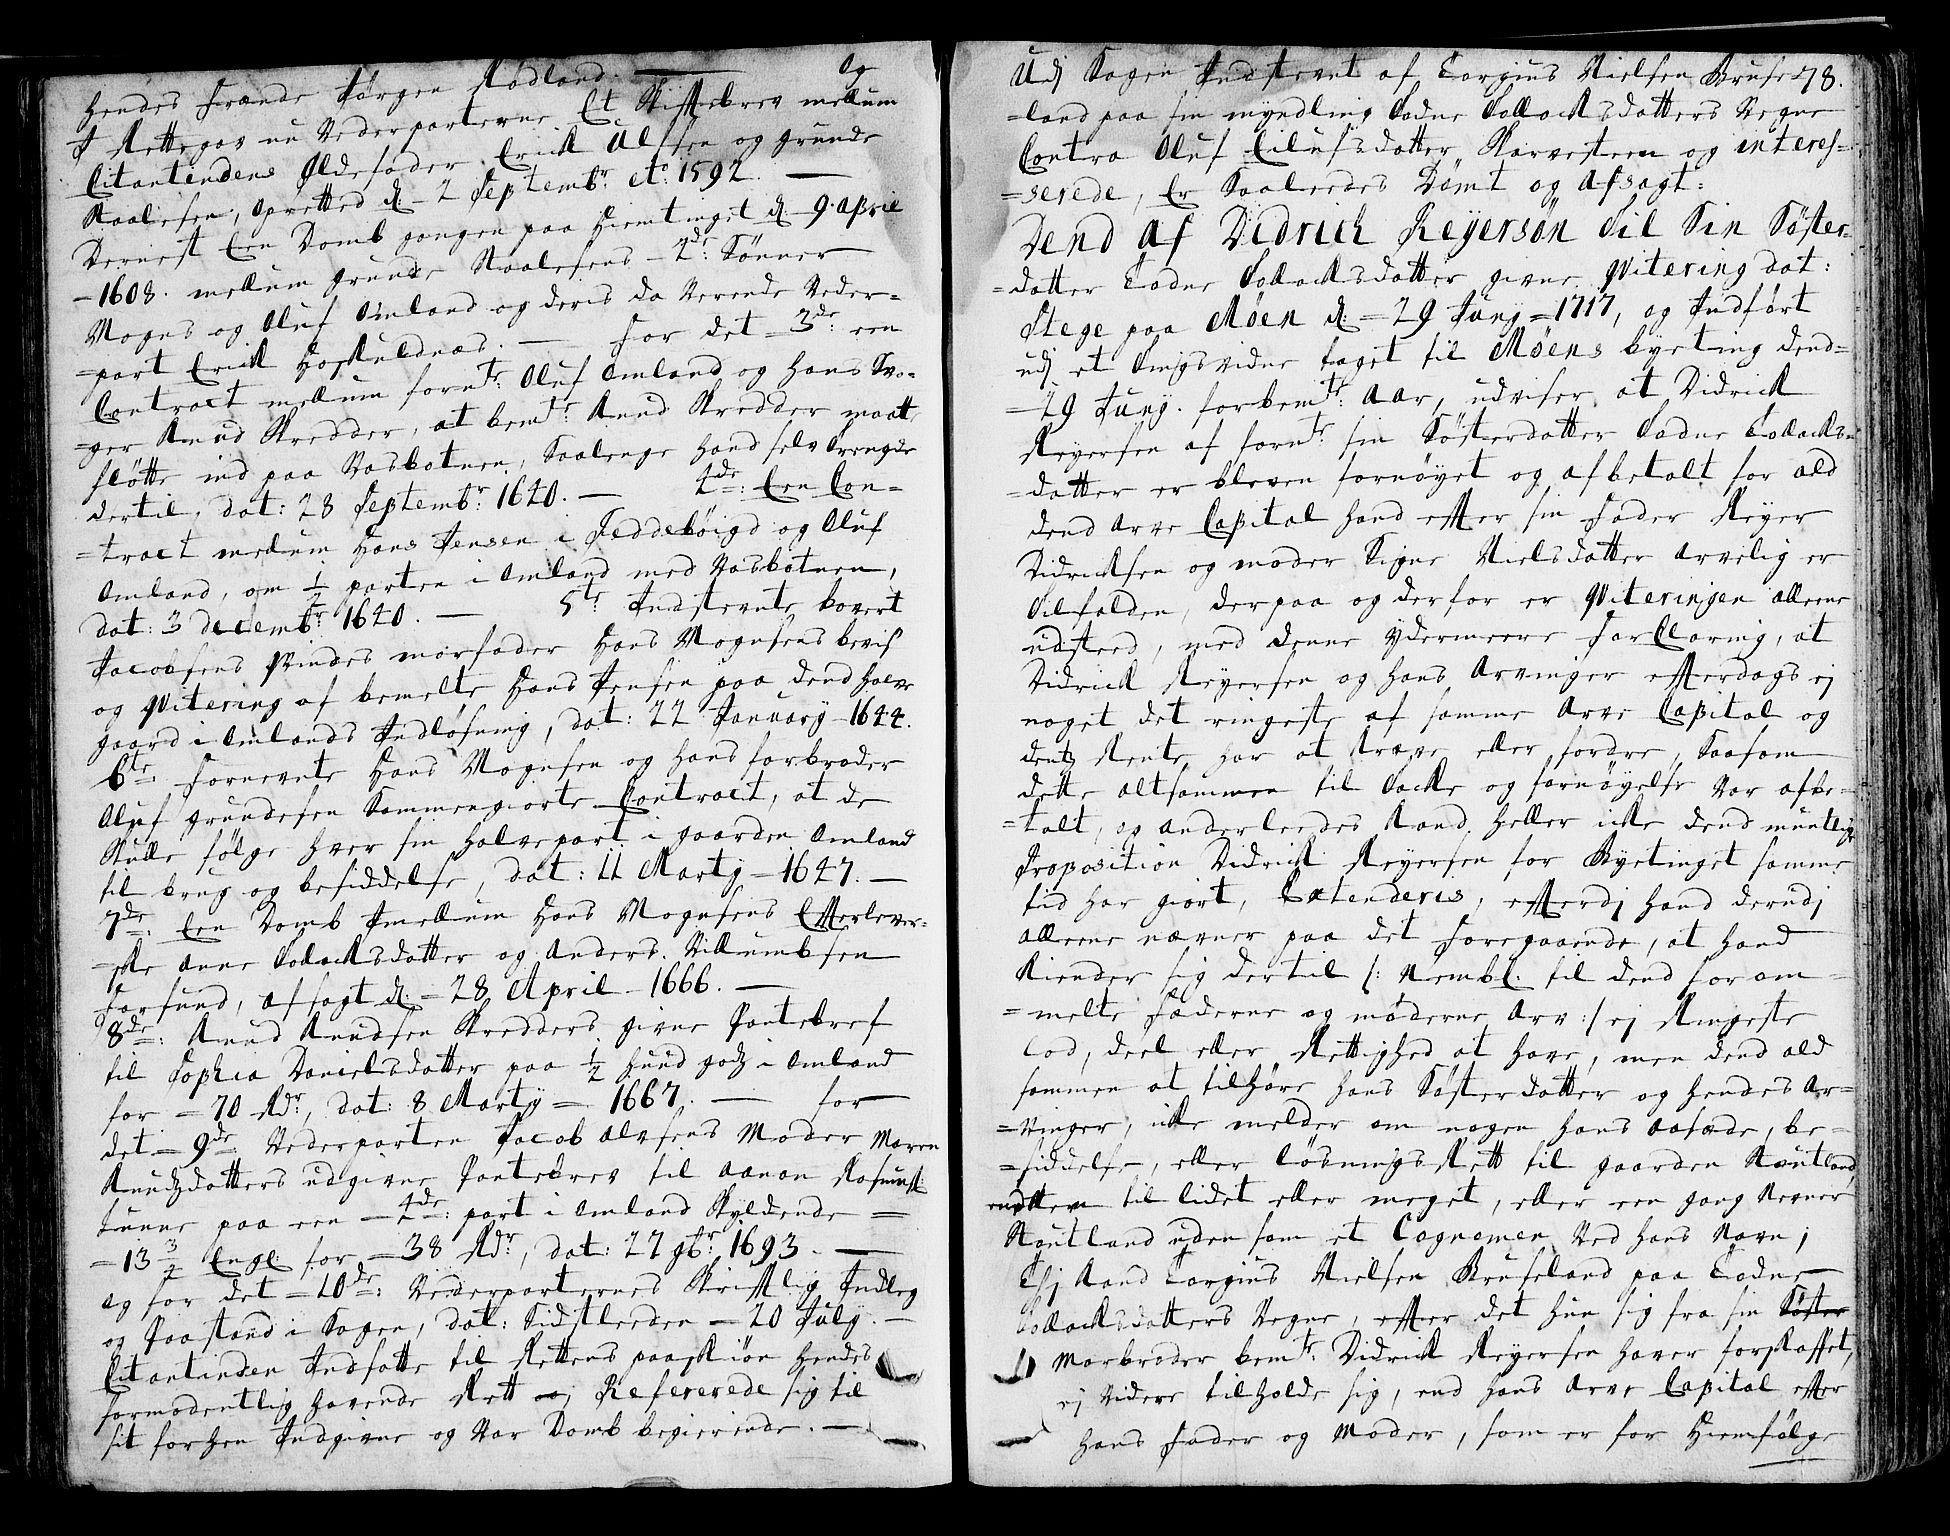 hendes frænde Jørgen Rødland. — Og
J Rettegav nu Vederparterne Et Skiftebrev mellum
Citantendens Oldefader Erick Olfsen og grunde
Roalefen, opretted d. 2 Septembr: Ao 1592. —
Dernest Een Domb gangen paa Hiemtinget d. 9 April
— 1608. mellum grunde Roalesens — 2de: Sönner —
Mogns og Oluf Omland og deris da Verende Veder=
=part Erick Hoskuldnæs. — for det — 3de: een
Contract mellum forn:te Oluf Omland og hans Svo=
=ger Knud Skredder, at bem:te Knud Skredder maatte
fløtte ind paa Vasbotnen, Saalenge hand selv trengde
dertil, dat: 28 Septembr: 1640. — 4de: Een Con=
=tract mellum Hans Jensen i Feddebøigd og Oluf
Omland, om 1/2 parten i Omland med Vasbotnen,
dat: 3 decembr: 1640. — 5te: Indstevnte Govert
Jacobsens Qvindes morfader Hans Mognsens bevis
og Qvitering af bemelte Hans Jensen paa dend halve
gaard i Omlands Indløsning, dat: 22 January 1644.
6te: Fornevnte Hans Mognsen og hans farbroder
Oluf grundesen Sammengiorte Contract, at de
Skulle følge hver sin halvepart i gaarden Omland
til brug og besiddelse, dat: 11 Marty — 1647. —
7de: Een Domb Jmellum Hans Mognsens Efterlever=
=ske Anne Tollacksdatter og Anders Villumbsen
Farsund, afsagt d. 28 April — 1666. —
8de: Knud Knudsen Skredders givne Pantebref
til Sophia Danielsdatter paa 1/2 huud godz i Omland
for — 70 Rdr, dat: 8 Marty — 1667. — for
det — 9de Vederparten Jacob Olefsens Moder Maren
Knudzdatters udgivne Pantebrev til Aanon
paa een — 4de: part i Omland Skyldende =
— 13 3/2 Engl: for — 38 Rdr, dat: 27 9br: 1693. —
og for det — 10de: Vederparternes Skriftlig Indleg
og Paastand i Sagen, dat: Sidstleeden — 20 July. —
Citantinden Indsatte til Rettens paaskiøn hendes
formodentlig havende Rett og Refererede sig til
sit forhen Indgivne og Var Domb begierende. —
Udj Sagen Indstevnt af Torgius Nielsen Kruse 78.
=land paa sin myndling Todne Tollacksdatters Vegne
Contra Oluf Eilufsdatter Skarvesteen og interes=
=serede, Er Saaleedes Dømt og Afsagt:
Dend af Didrich Reyersøn til Sin Søster=
=datter Todne Tollacksdatter givne Qvitering dat:
Stege paa Møen d: — 29 Juny — 1717, og Indført
udj et tingsvidne taget til Møens byeting dend=
— 29 Juny. forbem:te: Aar, udviser at Didrick
Reyersen af forn:te: sin Søsterdatter Todne Tollacks=
=datter er bleven fornøyet og afbetalt for ald
dend Arve Capital hand efter sin Fader Reyer
Didricksen og moder Signe Nielsdatter arvelig er
tilfalden, derpaa og derfor er Qviteringen alleene
udsteed, med denne Ydermeere forklaring, at
Didrick Reyersen og hans Arvinger efterdags ej
noget det ringeste af samme Arve Capital og
dentz Rente, har at kræve eller fordre, Saasom
dette altsammen til Tacke og fornøyelse Var afbe=
=talt, og anderleedes kand heller icke dend muntlige
Proposition Didrick Reyersen for Byetinget samme
tid har giort, Extenderis, efterdj hand derudj
alleene nævner paa det foregaaende, at hand
kiender sig dertil /: nembl: til dend for om=
=melte Fæderne og møderne Arv :/ ej Ringeste
Lod, deel eller Rettighed at have, men dend ald
sammen at tilhøre hans Søsterdatter og hendes Ar=
=vinger, icke melder om nogen hans Aasæde, be=
=siddelse, eller løsningsRett til gaarden Røntland,
endten til lidet eller meget, eller een gang Nevner
Røntland uden som et Cognomen Ved hans Navn,
Thj kand Torgius Nielsen Kruseland paa Todne
Tollacksdatters Vegne, efter det hun sig fra sin Søster
Morbroder bem:te: Didrick Reyersen haver forskaffet,
ej videre tilholde sig, end hans Arve Capital efter
hans Fader og Moder, som er for Hiemfølge